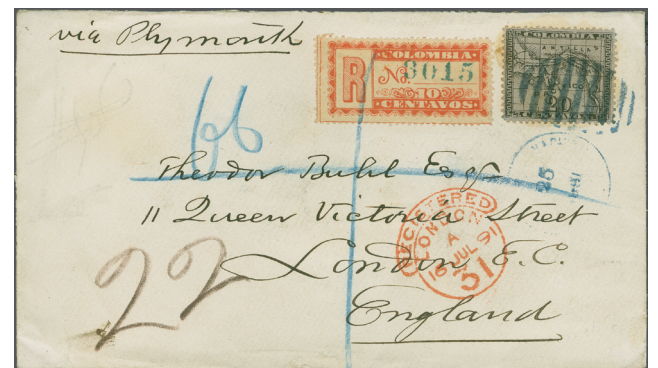 via Plymouth
COLOMBIA
R No. 8015
10
CENTAVOS
COLOMBIA
20
66
25
Theodor Buhl Esq.
11 Queen Victoria Street
London, E.C.
England
REGISTERED
LONDON
A
16 JUL 91
51
22